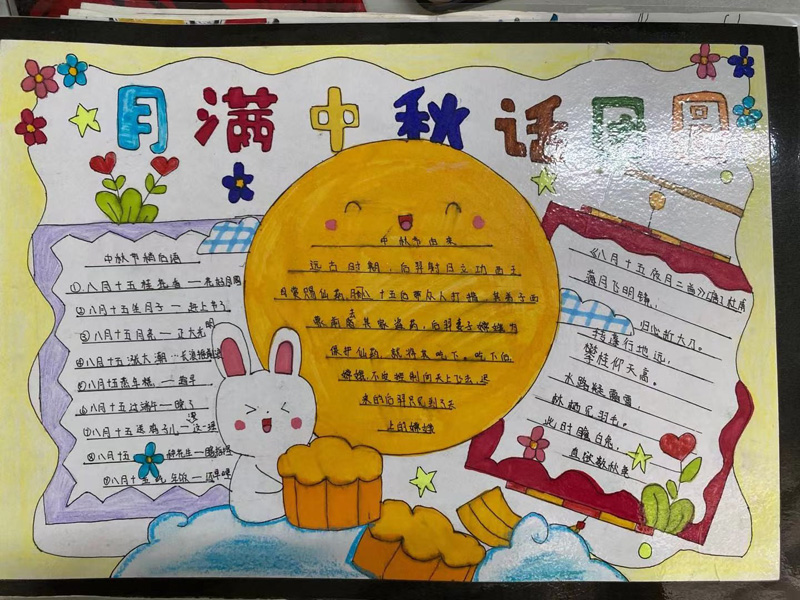 月满中秋话团圆
中秋节俏句语
①八月十五桂花香一
②八月十五生月子一赶上节了
③八月十五月亮一正大光明
④八月十五涨大潮
⑤八月十五蒸年糕一趁早
⑥八月十五过端午一晚了
⑦八月十五送鸡子儿一
⑧八月十五 种花生一瞎指挥
⑨八月十五吃年饭一还早哩
中秋节由来
远古时期,后羿射日立功西王
母常赐仙药,八月十五后带众人打猎,其弟子
后羿妻子嫦娥为
保护仙药,就将其吃下。吃下后
嫦娥不由控制向天上飞去,迟
来的后羿只见到了天
上的嫦娥
《八月十五夜月二首》(唐)杜甫
满月飞明镜,
归心折大刀。
转蓬行地远,
攀桂仰天高。
水路疑霜雪,
林栖见羽毛。
此时瞻白兔,
直欲数秋毫